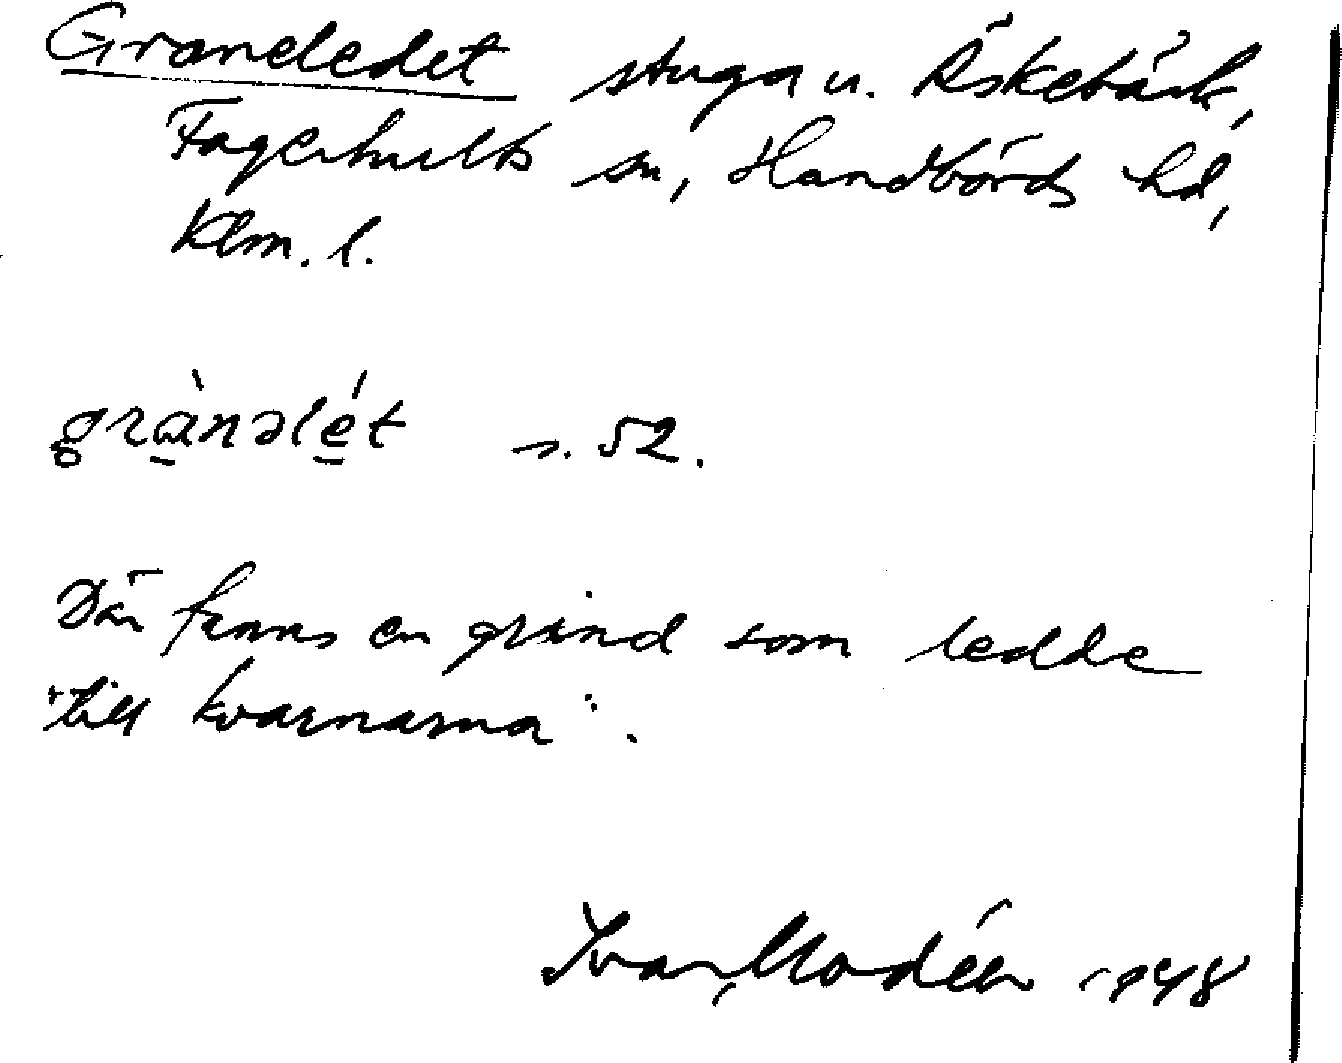 Graneledet stuga u. Äskebäck,
Fagerhults sn, Handbörds hd,
Klm. l.
grà̱nəlé̱t s. 52.
Där fanns en grind som ledde
"till kvarnarna".
Ivar Modéer 1948